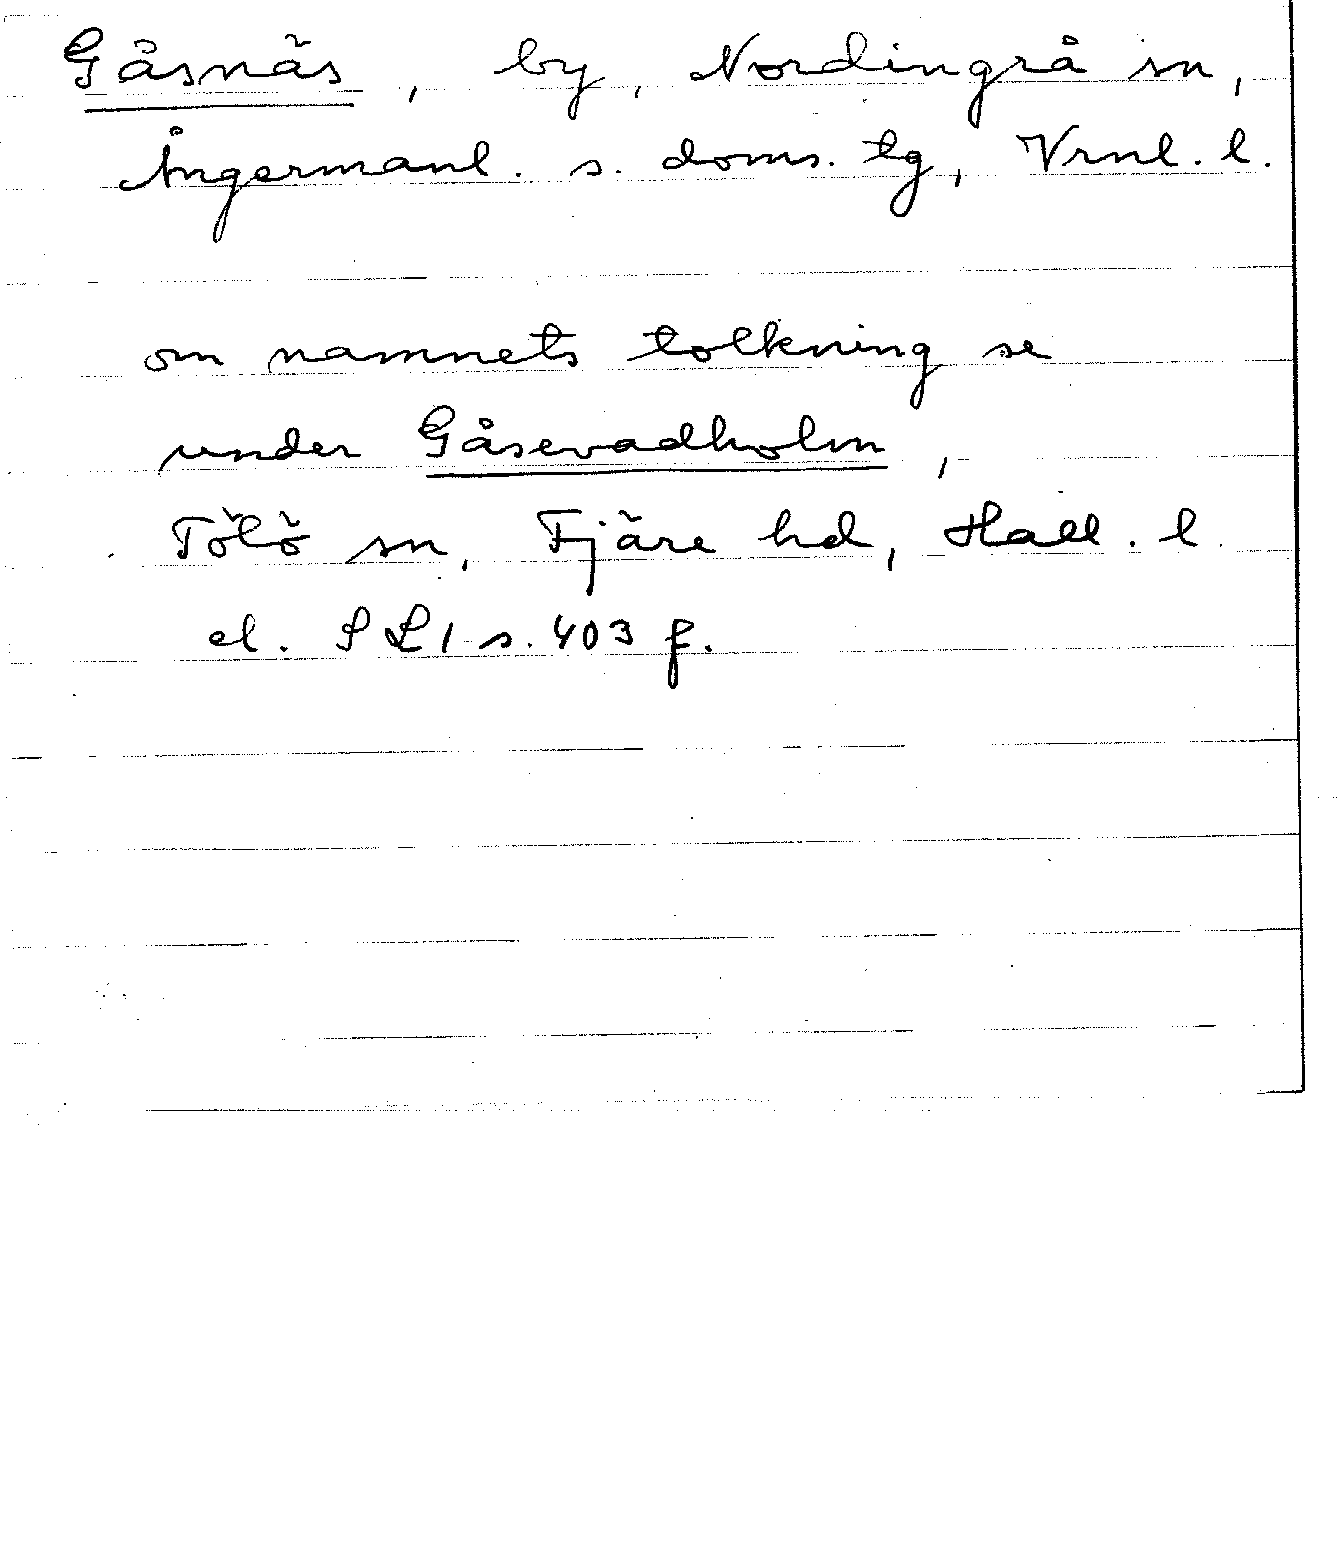 Gåsnäs, by, Nordingrå sn,
Ångermanl. s. doms. tg, Vrnl. l.
om namnets tolkning se
under Gåsevadholm,
Tölö sn, Fjäre hd, Hall. l
el. SL 1 s. 403 f.